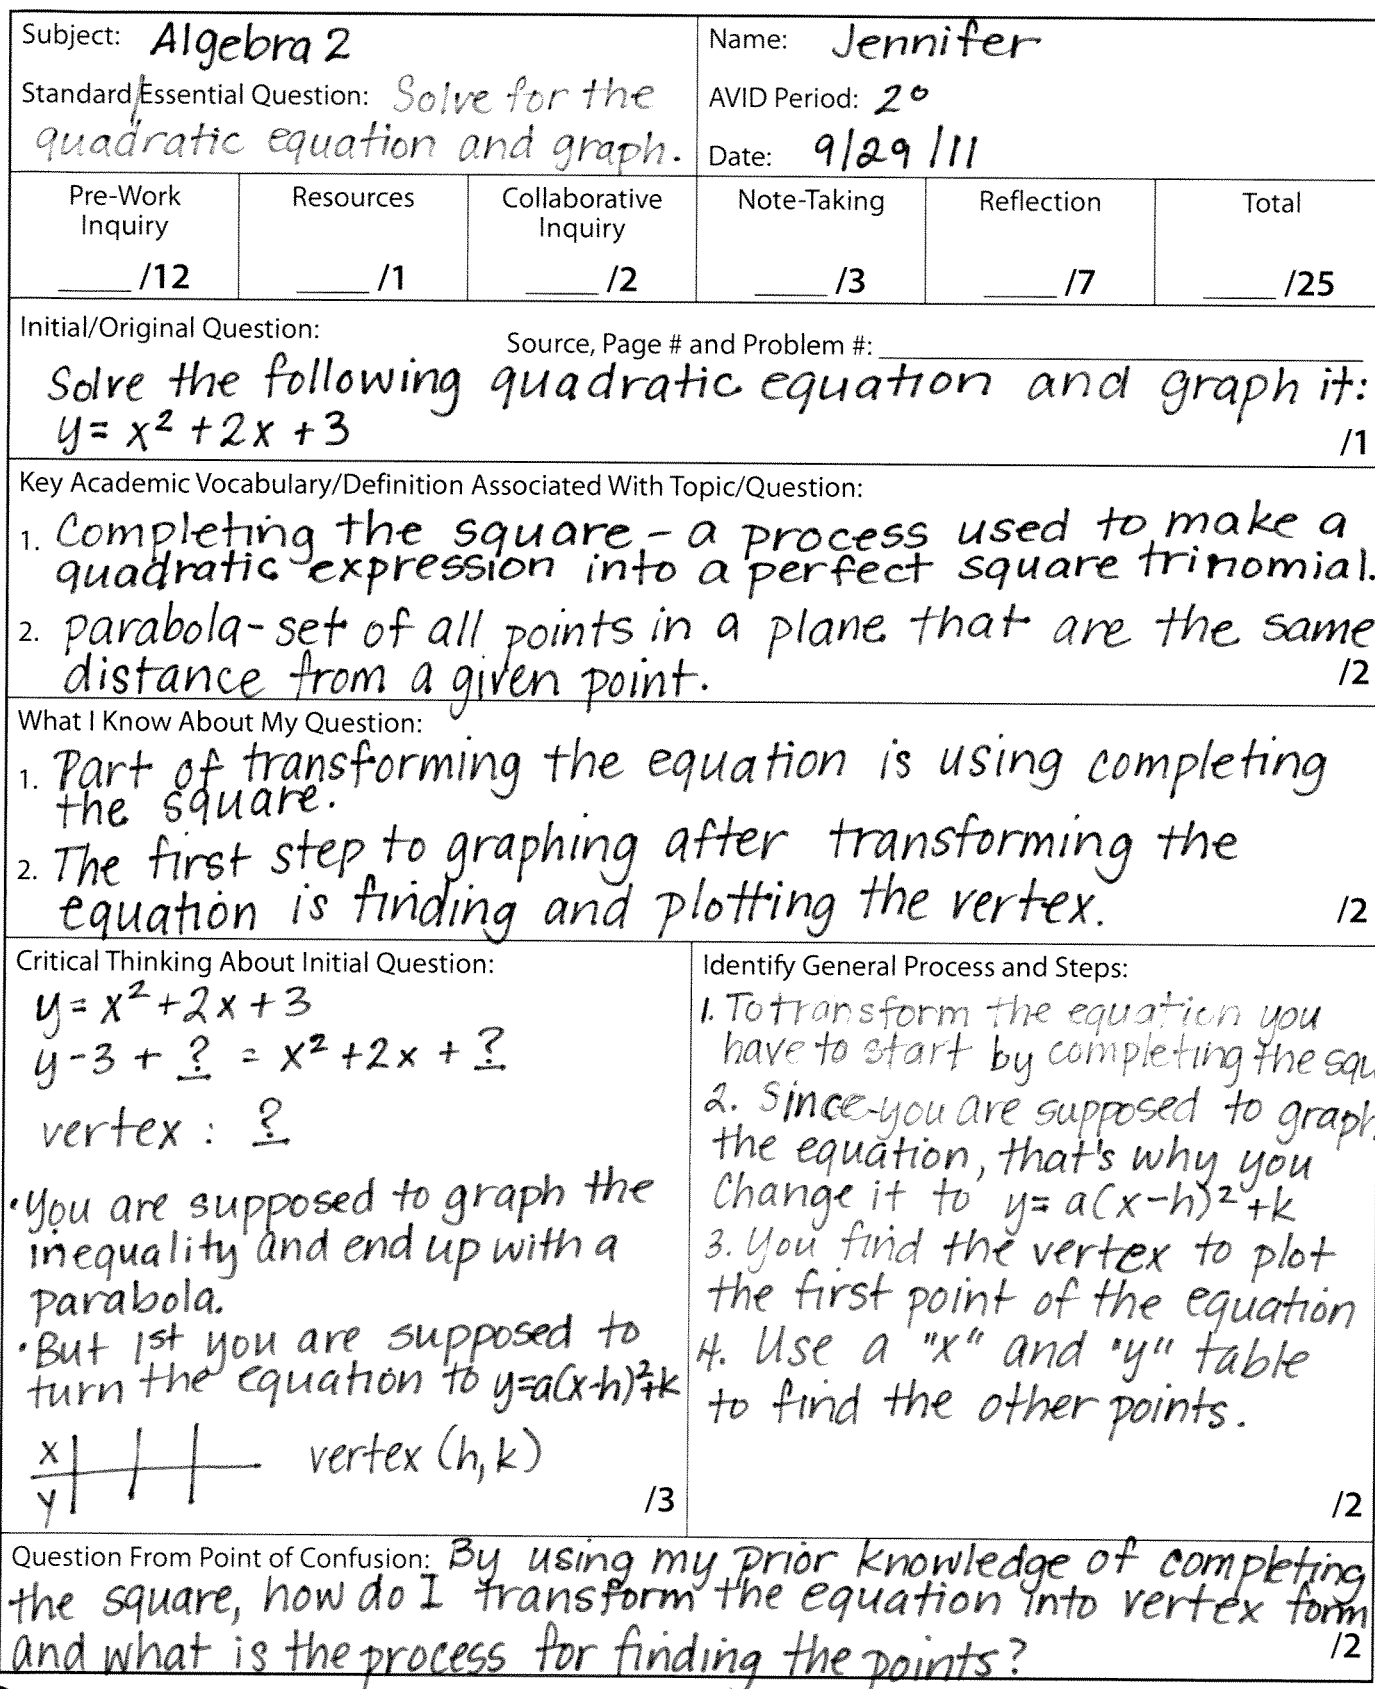 Subject: Algebra 2
Name: Jennifer
Standard/Essential Question: Solve for the
quadratic equation and graph.
AVID Period: 2°
Date: 9/29/11
Pre-Work
Inquiry
Resources
Collaborative
Inquiry
Note-Taking
Reflection
Total
_____ /12
_____ /1
_____ /2
_____ /3
_____ /7
_____ /25
Initial/Original Question:
Source, Page # and Problem #:
Solve the following quadratic equation and graph it:
y = x² + 2x + 3
/1
Key Academic Vocabulary/Definition Associated With Topic/Question:
1. Completing the square - a process used to make a
quadratic expression into a perfect square trinomial.
2. parabola - set of all points in a plane that are the same
distance from a given point.
/2
What I Know About My Question:
1. Part of transforming the equation is using completing
the square.
2. The first step to graphing after transforming the
equation is finding and plotting the vertex.
/2
Critical Thinking About Initial Question:
y = x² + 2x + 3
y - 3 + ? = x² + 2x + ?
vertex : ?
• You are supposed to graph the
inequality and end up with a
parabola.
• But 1st you are supposed to
turn the equation to y=a(x-h)²+k
x
y
vertex (h, k)
/3
Identify General Process and Steps:
1. To transform the equation you
have to start by completing the squ
2. Since you are supposed to graph
the equation, that's why you
Change it to y= a(x-h)²+k
3. You find the vertex to plot
the first point of the equation
4. Use a "x" and "y" table
to find the other points.
/2
Question From Point of Confusion: By using my prior knowledge of completing
the square, how do I transform the equation into vertex form
and what is the process for finding the points?
/2